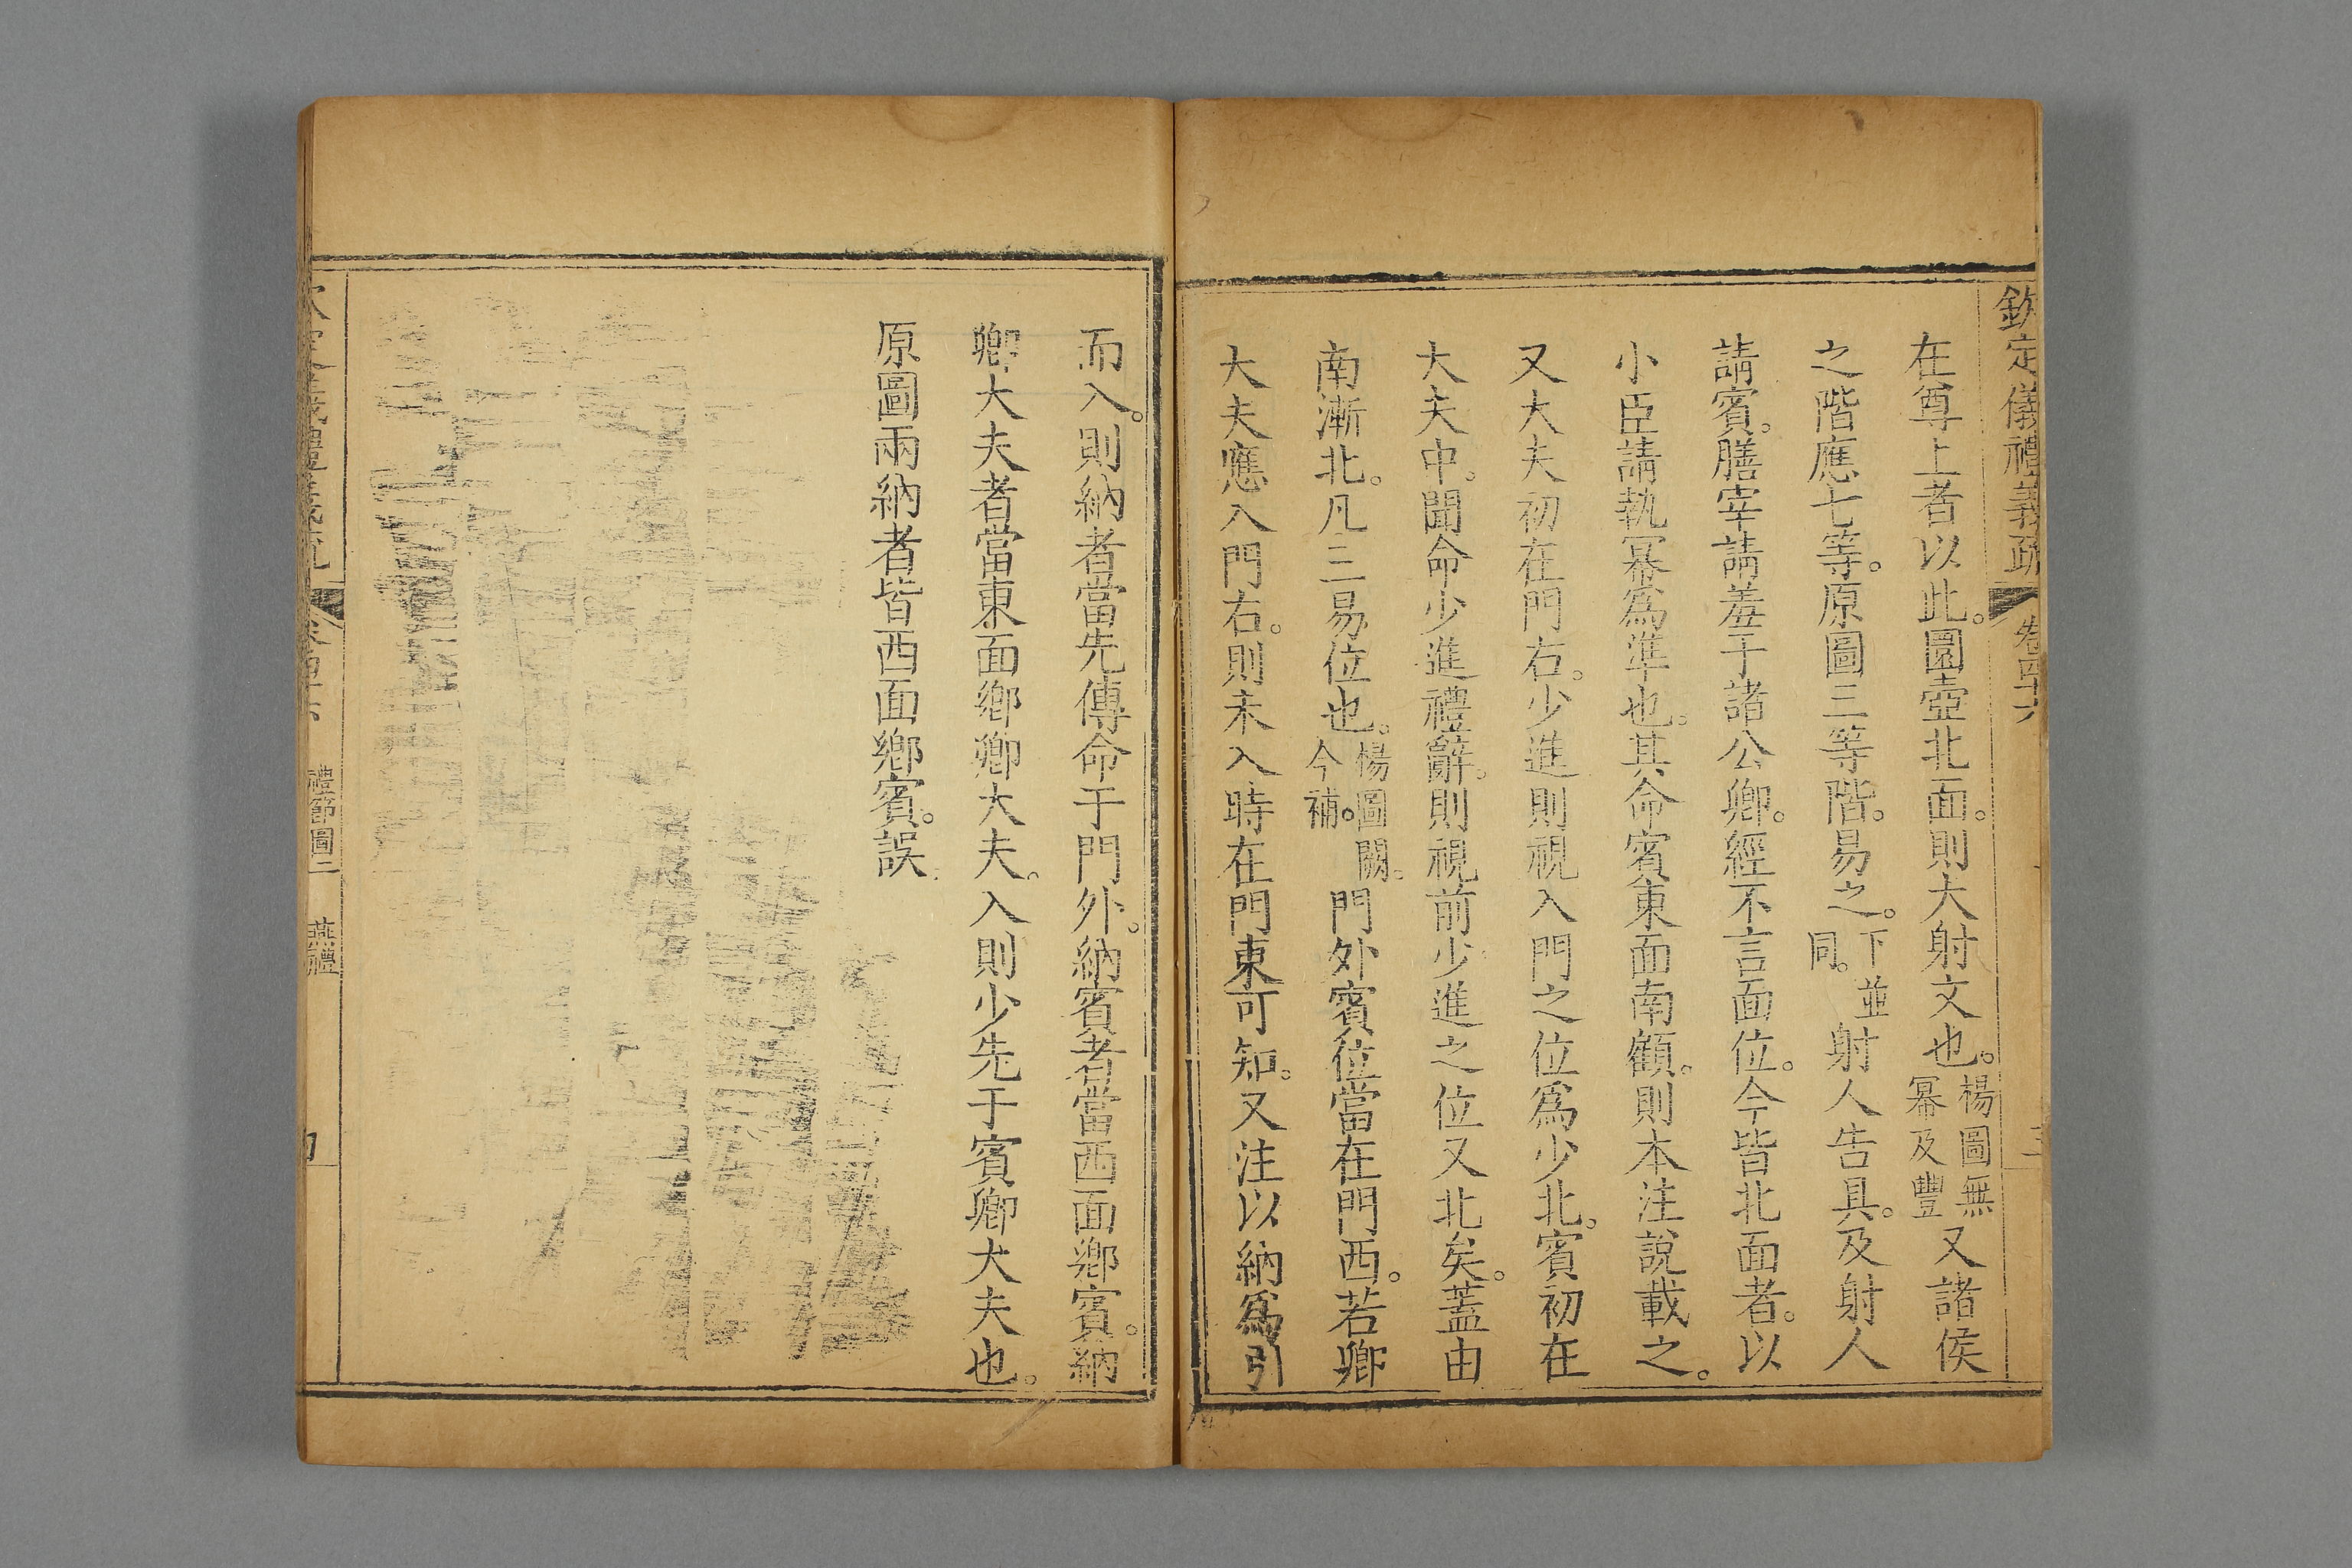 欽定儀禮義疏 卷四十六
在尊上者以此。圜壺北面。則大射文也。楊圖無冪及豐又諸侯
之階應七等。原圖三等階。易之。下並同。射人告具。及射人
請賓。膳宰請羞于諸公卿。經不言面位。今皆北面者。以
小臣請執冪爲準也。其命賓東面南顧。則本注說載之。
又大夫初在門右。少進則視入門之位爲少北。賓初在
大夫中。聞命少進禮辭。則視前少進之位又北矣。蓋由
南漸北。凡三易位也。楊圖闕。今補。門外賓位當在門西。若卿
大夫應入門右。則未入時在門東可知。又注以納爲引
而入。則納者當先傳命于門外。納賓者當西面鄉賓。納
卿大夫者當東面鄉卿大夫。入則少先于賓卿大夫也。
原圖兩納者皆西面鄉賓。誤
禮節圖二 燕禮